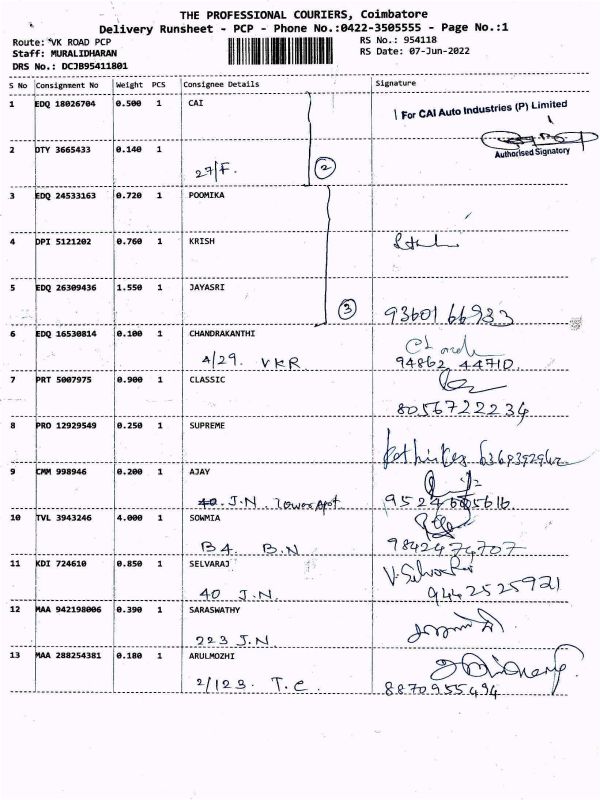 THE PROFESSIONAL COURIERS, Coimbatore
Delivery Runsheet - PCP - Phone No.:0422-3505555 - Page No.:1
Route: VK ROAD PCP
RS No.: 954118
Staff: MURALIDHARAN
RS Date: 07-Jun-2022
DRS No.: DCJB95411801
S No Consignment No Weight PCS Consignee Details Signature
1 EDQ 18026704 0.500 1 CAI
For CAI Auto Industries (P) Limited
Authorised Signatory
2 DTY 3665433 0.140 1
27/F. 2
3 EDQ 24533163 0.720 1 POOMIKA
4 DPI 5121202 0.760 1 KRISH
5 EDQ 26309436 1.550 1 JAYASRI
3 9360166933
6 EDQ 16530814 0.100 1 CHANDRAKANTHI
4/29. VKR 94862 44710
7 PRT 5007975 0.900 1 CLASSIC
8056722234
8 PRO 12929549 0.250 1 SUPREME
9 CMM 998946 0.200 1 AJAY
40 J.N.
10 TVL 3943246 4.000 1 SOWMIA
B4. B.N 9842474707
11 KDI 724610 0.850 1 SELVARAJ
40 J.N. 9442525921
12 MAA 942198006 0.390 1 SARASWATHY
223 J.N
13 MAA 288254381 0.180 1 ARULMOZHI
2/123. T.C. 8870955494